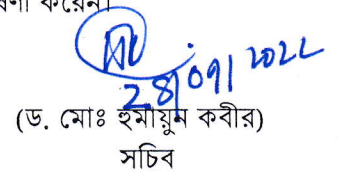 করেন।
28/09/2022
(ড. মোঃ হুমায়ুন কবীর)
সচিব